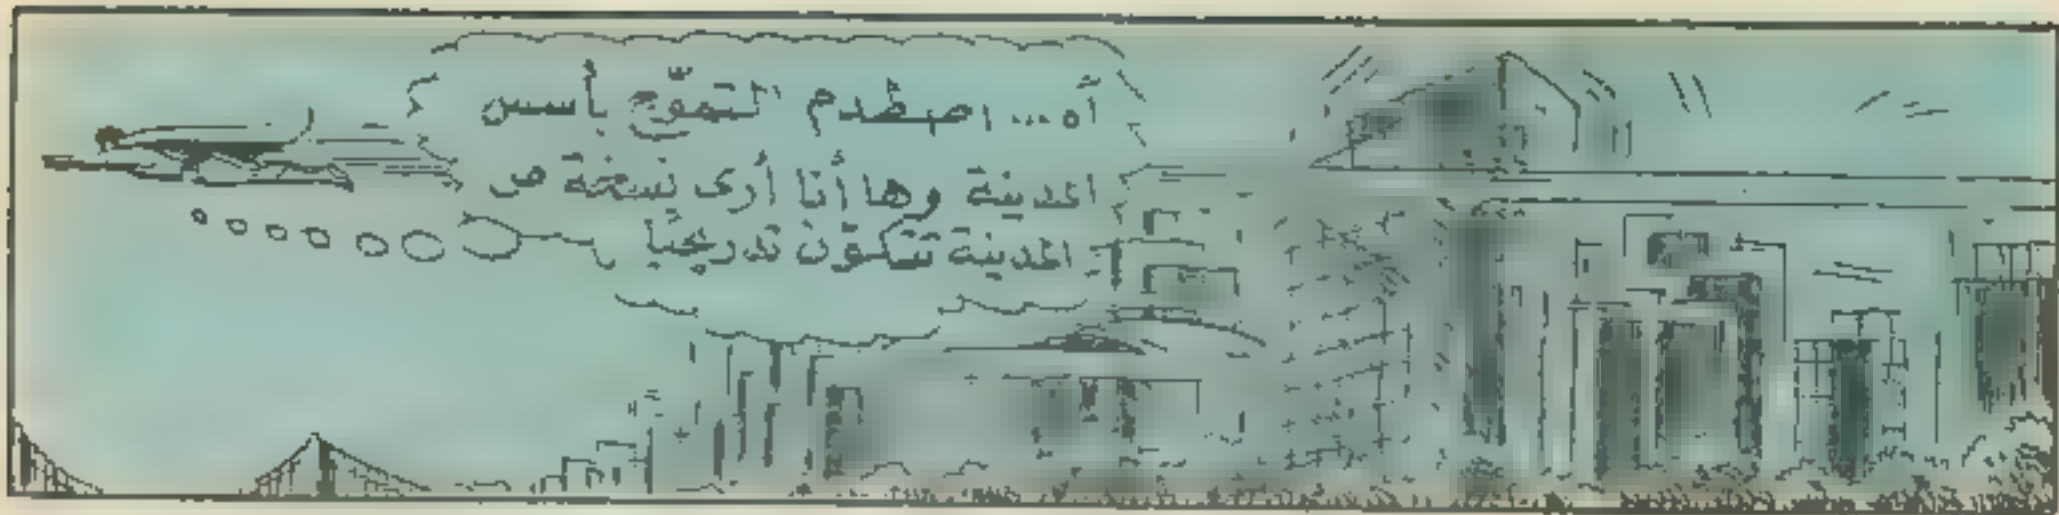 آه ... اصطدم التموّج بأسس
المدينة وها أنا أرى نسخة من
المدينة تتكوّن تدريجيّا